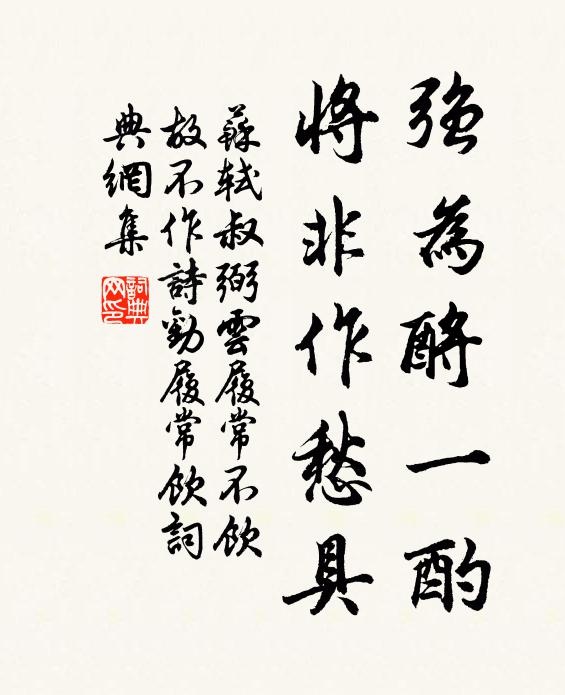 強為酹一酌
將非作愁具
蘇軾叔弼雲履常不飲
故不作詩勸履常飲詞
典網集
詞典
网印